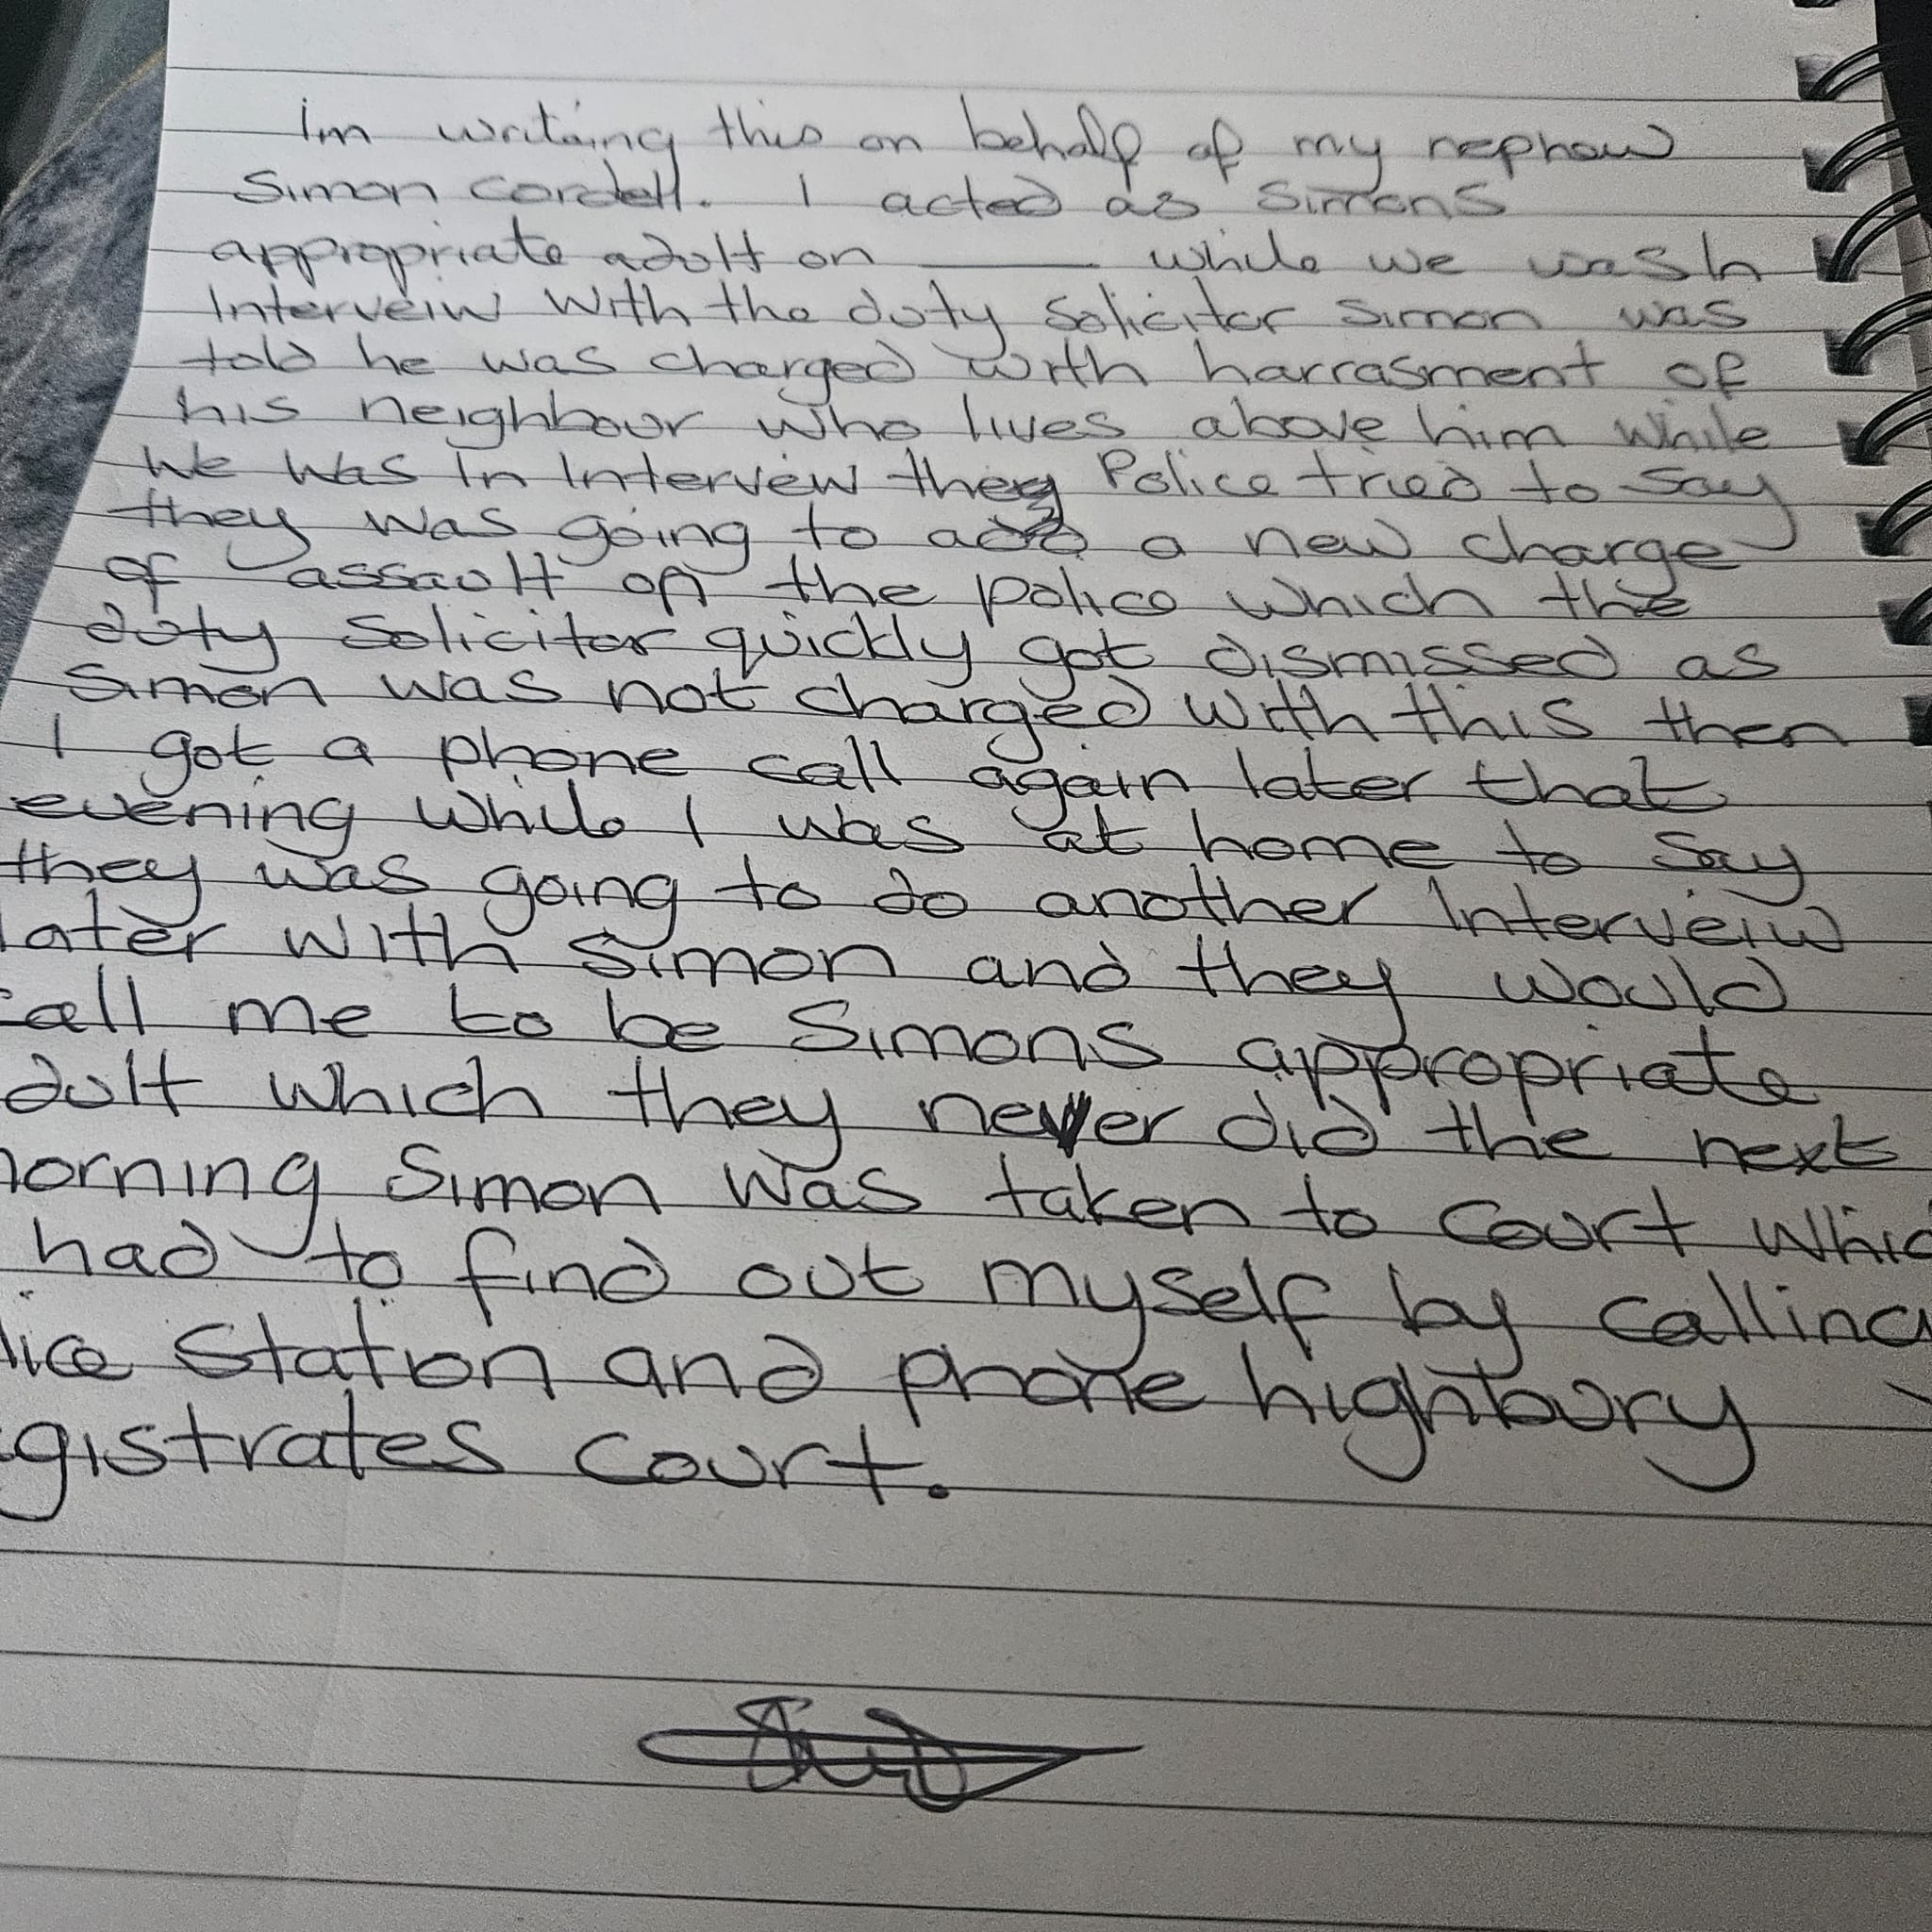 Im writing this on behalf of my nephow
Simon Cordell. I acted as Simons
appropriate adult on ______ while we was In
Interveiw With the duty Solicitor Simon was
told he was charged with harrasment of
his neighbour who lives above him while
We was In Interveiw they Police tried to Say
they was going to add a new charge
of assault on the police which the
duty Solicitor quickly got dismissed as
Simon was not charged with this then
I got a phone call again later that
evening while I was at home to Say
they was going to do another Interveiw
later with Simon and they would
call me to be Simons appropriate
dult which they never did the next
orning Simon was taken to Court Whic
had to find out myself by calling
lice Station and phone highbury
gistrates Court.